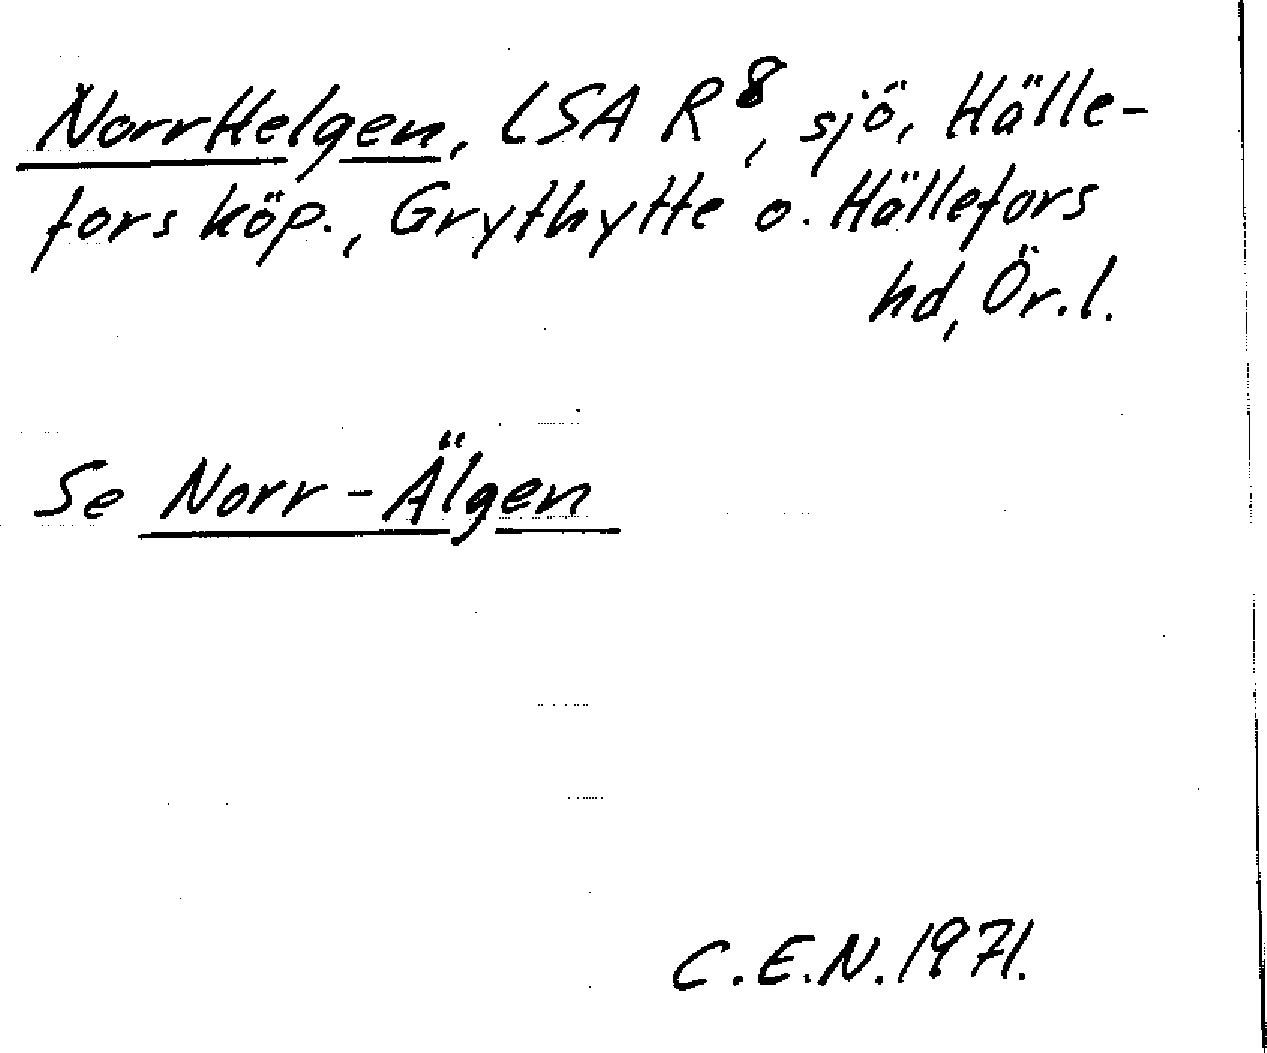 NorrHelgen, LSA R⁸, sjö, Hälle-
fors köp., Grythytte o. Hällefors
hd, Ör.l.
Se Norr-Älgen
C.E.N. 1971.